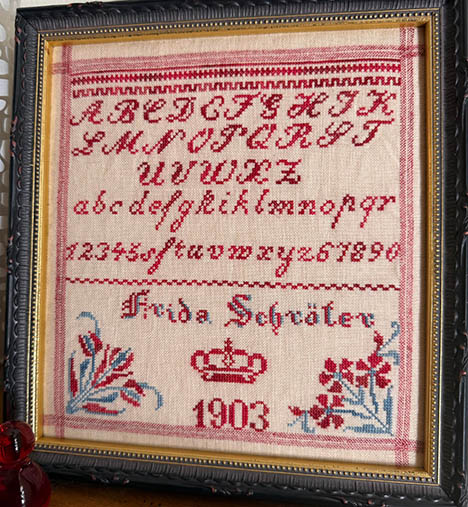 ABCDEFGHIK
LMNOPQRST
UVWXZ
abcdefghiklmnopqr
12345sſtuvwxyz67890
Frida Schröter
1903